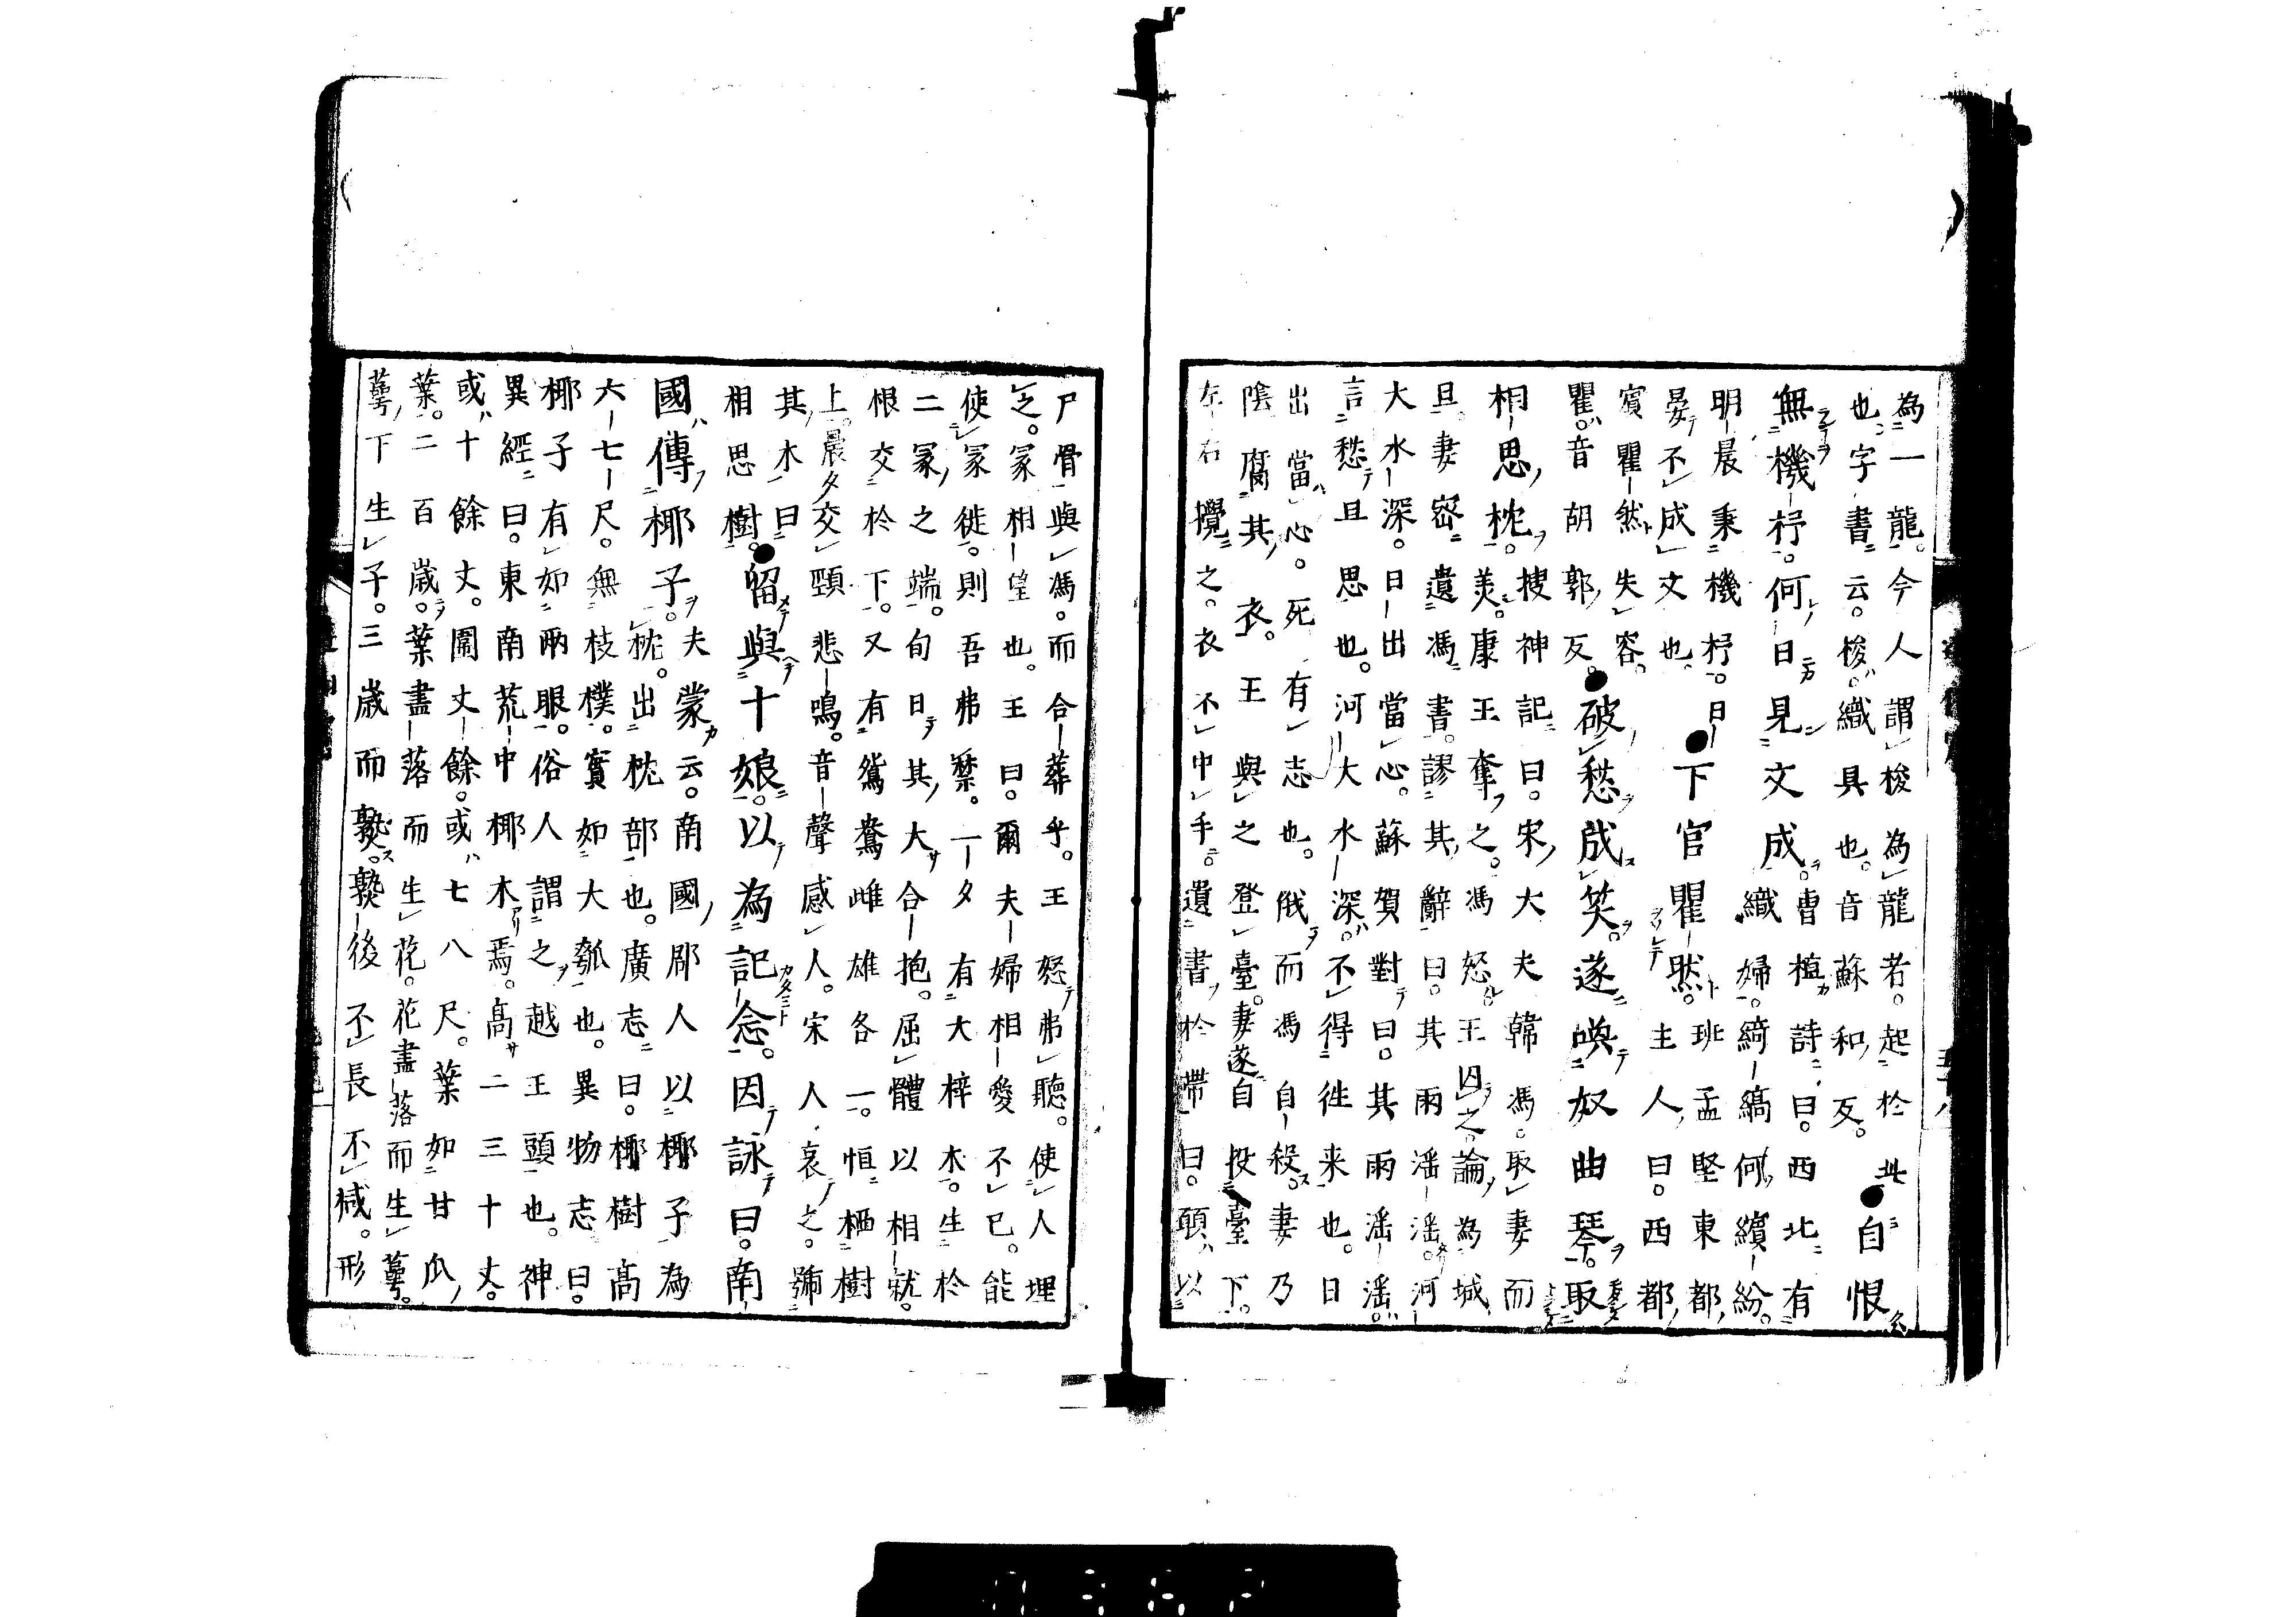 為一龍今人謂梭為龍者起於此●自恨
也字書云梭織具也音蘇和反
無機杼何日見文成曹植詩曰西北有
織婦綺縞何繽紛
明晨秉機杼日
晏不成文也●下官瞿然班孟堅東都
賓瞿然失容主人曰西都
瞿音胡郭反●破愁成笑遂喚奴曲琴取
相思枕搜神記曰宋大夫韓馮取妻而
美康王奪之馮怒王囚之論為城
旦妻密遺馮書謬其辭曰其雨滛滛河
大水深日出當心蘇賀對曰其雨滛滛
言愁且思也河大水深不得往来也日
出當心死有志也俄而馮自殺妻乃
陰腐其衣王與之登臺妻遂自投臺下
左右攬之衣不中手遺書於帶曰願以
尸骨與馮而合葬乎王怒弗聽使人埋
之冢相望也王曰爾夫婦相愛不已能
使冢徙則吾弗禁一夕有大梓木生於
二冢之端旬日其大合抱屈體以相就
根交於下又有鴛鴦雌雄各一恒栖樹
上晨夕交頸悲鳴音聲感人宋人哀之號
其木曰
相思樹●留與十娘以為記念因詠曰南
國傳椰子夫蒙云南國郡人以椰子為
枕出枕部也廣志曰椰樹高
六七尺無枝樸實如大瓠也異物志曰
椰子有如兩眼俗人謂之越王頭也神
異經曰東南荒中椰木焉高二三十丈
或十餘丈圍丈餘或七八尺葉如甘瓜
葉二百歲葉盡落而生花花盡落而生萼
萼下生子三歲而熟熟後不長不減形